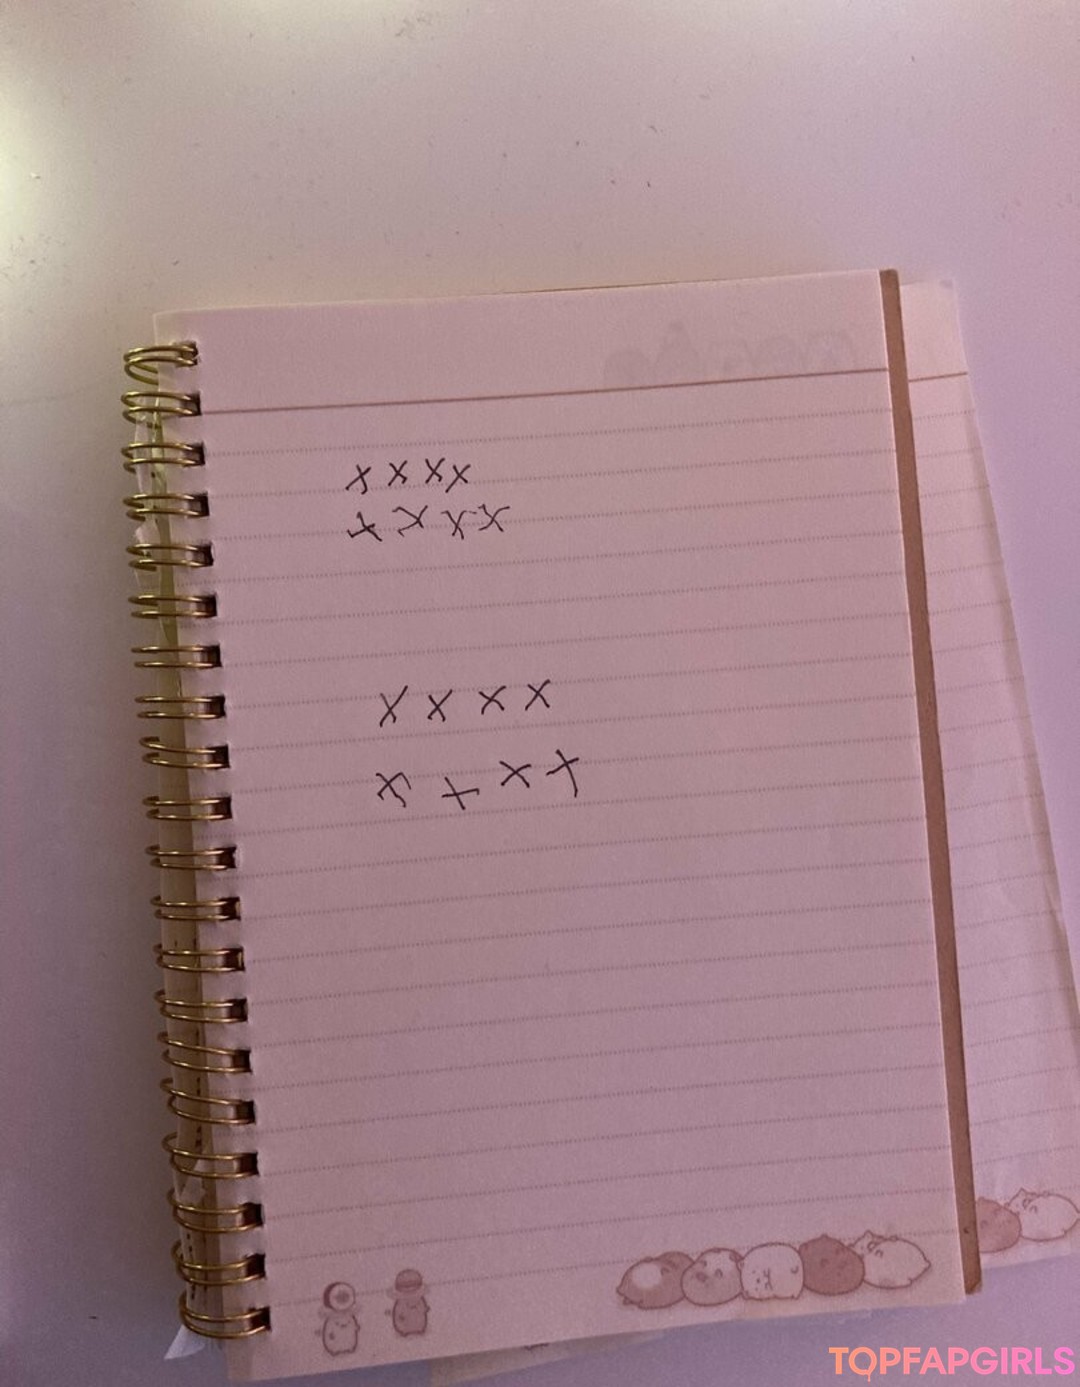 x x x x
x x x x
x x x x
x x x x
TOPFAPGIRLS